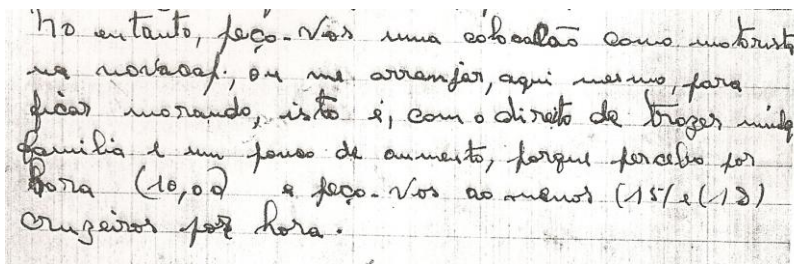 no entanto, peço-Vos uma colocalão como motorista
na novacap; ou me arranjar, aqui mesmo, para
ficar morando, isto é, com o direito de trazer minha
familia e um pouco de aumento, porque percebo por
hora (10,00) e peço-Vos ao menos (15/e(18)
cruzeiros por hora.